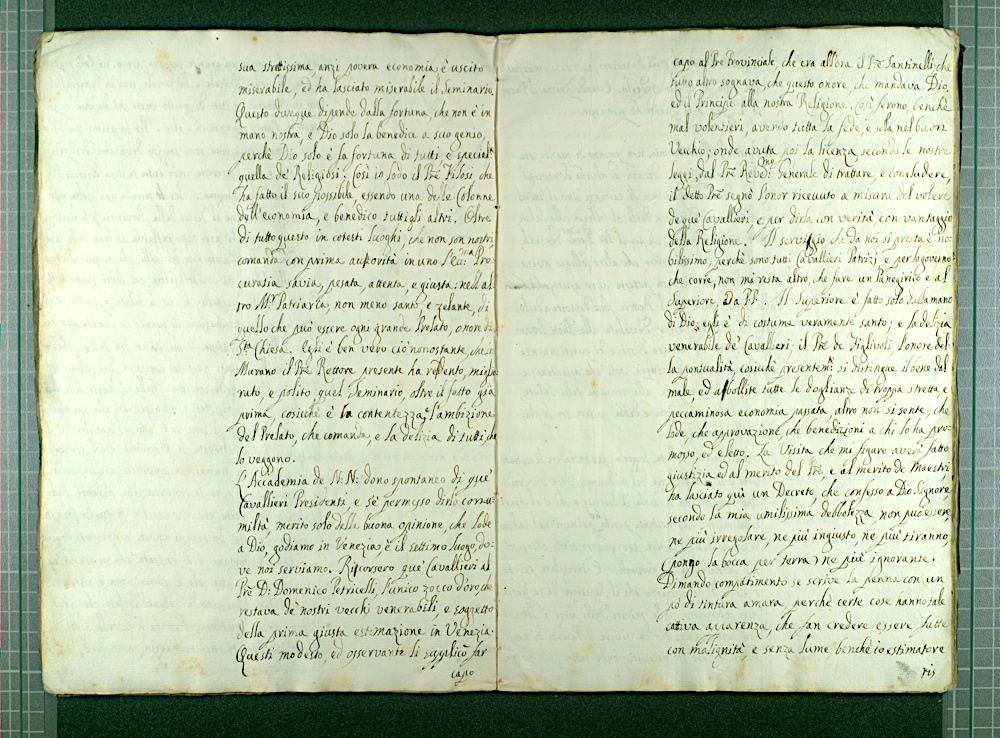 sua strettissima anzi povera economia è uscito
miserabile, ed ha lasciato miserabile il Seminario.
Questo dunque dipende dalla fortuna, che non è in
mano nostra, e Dio solo la benedice a suo genio,
perchè Dio solo è la fortuna di tutti e special.te
quella de' Religiosi. Così io lodo il Prē Filosi che
ha fatto il suo possibile, essendo una delle Colonne
dell'economia, e benedico tutti gli altri. Oltre
di tutto questo in cotesti luoghi, che non son nostri
comanda con prima autorità in uno l'Ecc.ma Pro-
curatia savia, pesata, attenta, e giusta: nell'al-
tro M.r Patriarca, non meno santo e zelante, di
quello che può essere ogni grande Prelato, onore di
S.ta Chiesa. Egli è ben vero ciò nonostante, che a
Murano il Prē Rettore presente ha redento, miglio-
rato, e polito quel Seminario, oltre il fatto già
prima, cosicchè è la contentezza e l'ambizione
del Prelato, che comanda, e la delizia di tutti che
lo veggono.
L'Accademia de N: N: dono spontaneo di que'
Cavallieri Presidenti, e s'è permesso dirlo con u-
miltà, merito solo della buona opinione, che lode
a Dio, godiamo in Venezia è il settimo luogo, do-
ve noi serviamo. Ricorsero que' Cavallieri al
Prē D: Domenico Petricelli, l'unico zocco d'oro, che
restava de' nostri vecchi venerabili, e soggetto
della prima giusta estimazione in Venezia.
Questi modesto, ed osservante li supplicò far
capo
capo al Prē Provinciale, che era allora il Prē Santinelli, che
tutto altro sognava, che questo onore, che mandava Dio,
ed il Principe alla nostra Religione. Così ferono, benchè
mal volentieri, avendo tutta la fede, e sola nel buon
Vecchio; onde avuta poi la licenza secondo le nostre
leggi, dal Prē Rev.mo Generale di trattare, e concludere,
il detto Prē segnò l'onor ricevuto a misura del volere
de que' Cavallieri e per dirla con verità, con vantaggio
della Religione. Il servigio che da noi si presta è no-
bilissimo, perchè sono tutti Cavallieri Patrizj, e per lo governo
che corre, non mi resta altro, che fare un Panegirico e al
Superiore, Da PP. Il Superiore è fatto solo dalla mano
di Dio; egli è di costume veramente santo; e la delizia
venerabile de' Cavallieri; il Prē de Figlivoli, l'onore del-
la pontualità, cosicchè presentem.te si distingue il bene dal
male, ed abollite tutte le doglianze di troppa stretta e
peccaminosa economia passata, altro non si sente, che
lode, che approvazione, che benedizioni a chi lo ha pro-
mosso, ed eletto. La Visita che mi figuro averà fatto
giustizia ed al merito del Prē, e al merito de Maestri,
ha lasciato quì un Decreto, che confesso a Dio Signore
secondo la mia umilissima debbolezza, non può essere,
ne più irregolare, ne più ingiusto, ne più tiranno,
(pongo la bocca per terra) ne più ignorante.
Dimando compatimento se scrive la penna con un
pò di tintura amara, perchè certe cose hanno tale
cattiva apparenza, che fan credere essere fatte
con malignità, e senza lume, benchè io estimatore